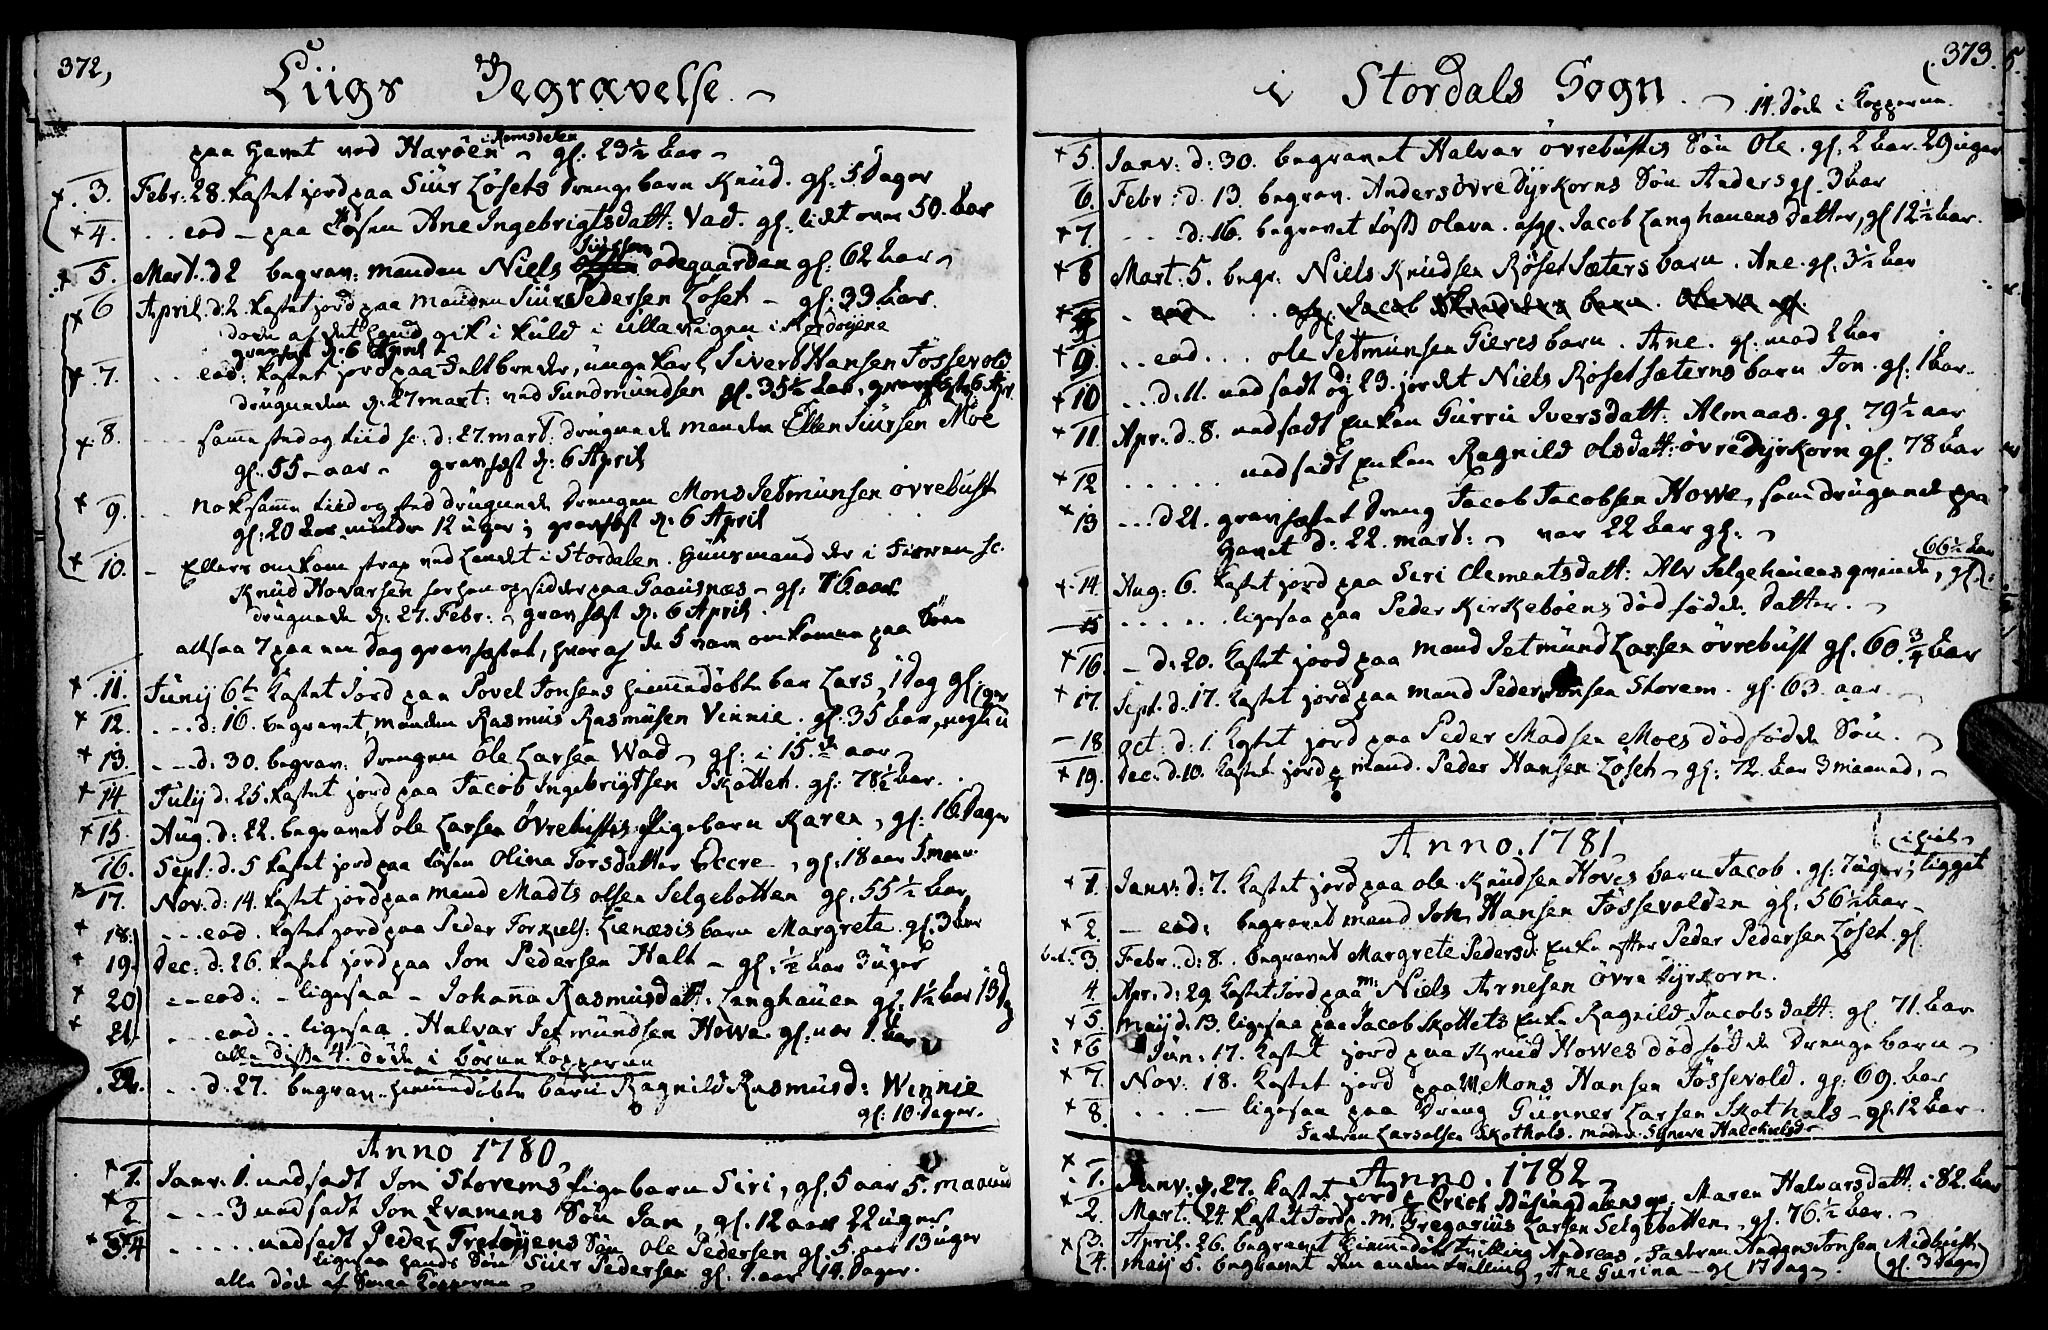 372,
Liigs Begravelse
paa Havet ved Haröen i Romsdalen gl: 23½ aar
3. Febr: 28. kastet jord paa Siur Lösets Drenge barn Knud. gl: 5 Dager
4. .. eod - paa Ane Ingebrigtsdatt: Vad. gl: lidt over 50. aar
5. Mart. d 2 begrav: manden Niels Siursen ödegaarden gl: 62 aar
6 April. d: 2. kastet jord paa manden Siur Pedersen Löset - gl: 33 aar.
döde af det hand gik i kuld i ullavigen i Nordöyene
gravfæst d: 6 April
7. ... eod: kastet jord paa unge karl Sivert Hansen Fössevold
drugnede d: 27 mart: ved Gudmundsen gl. 35½ aar, gravfæst 6 Apr.
8. ... samme sted og tiid sc: d: 27. mart: drugnede manden Ellen Siursen Moe
gl: 55 - aar - gravfæst d: 6 April
9. .. nok samme tiid og sted drugnede Drengen Mons Jetmunsen övrebust
gl: 20 aar mindre 12 uger; gravfæst d: 6 April
10. - Ellers omkom strax ved Landet i Stordalen. Huusmand der i Sognen sc:
Knud Hovarsen for han opsidder paa Gaasnæs - gl: 76. aar.
drugnede d: 27. Febr: - gravfæst d: 6 April.
altsaa 7 paa een Dag gravfæstet, hvoraf de 5 vare omkomne paa Söen
11. Junij 6te kastet Jord paa Povel Jonsens hiemmedöbte barn Lars, 1 Dag gl
12. ... d: 16. begravet manden Rasmus Rasmusen Vinnie. gl: 35 aar,
13. --- d: 30. begrav: Drengen Ole Larsen Wad - gl: i 15.de aar
14 Julij d: 25. kastet jord paa Jacob Ingebrigtsen Skotteh. gl: 78½ aar.
15. Aug: d: 22. begravet ole Larsen Övrebustes Pigebarn Karen, gl: 16. Dager
16. Sept: d. 5 kastet jord paa Olina Torsdatter Occre, gl: 18 aar 5. man:
17. Nov. d: 14. kastet jord paa mand Madts olsen Selgebotten gl, 55½ aar
18. --- eod. kastet jord paa Peder Torkiels: Lienæsis barn Margrete. gl. 3 aar
19. Dec: d: 26. kastet jord paa Jon Pedersen Halt - gl; ½ aar 3 uger
20) -- eod: - ligesaa - Johanna Rasmusdatt: Langhauen gl: 1½ aar 13 D
21. ... eod .. ligesaa. Halvar Jetmundsen Howe. gl: nær 1. aar
alle disse 4. döde i börne kopperne
22. ... d: 27. begrav. hiemmedöbte barn Ragnild Rasmusd: Winnie
gl: 10. Dager.
Anno 1780
1. Janr: 1. nedsadt Jon Storems Pige barn Siri, gl. 5 aar 5. maaned
2 - - - 3 nedsadt Jon Kvamens Sön Jan, gl. 12 aar 22 uger.
3. 4 ..... nedsadt Peder Tretöyens Sön Ole Pedersen gl: 5 aar 13 uger
ligesaa hands Sön Siur Pedersen gl: 1. aar 14. Dager.
alle döde af Smaa Kopperne
373.
i Stordals Sogn
14. döde i Kopperne.
5. Janv: d: 30. begravet Halvar övrebustes Sön Ole. gl. 2 aar. 29 uger
6. Febr: d. 13. begrav. Anders Övre Dyrkorns Sön Anders gl. 3 aar
7 ... d: 16. begravet Olava. afgl. Jacob Langhauens datter, gl 12½ aar.
8 Mart: 5. begr. Niels Knudsen Röset Sæters barn. Ane. gl: 3½ aar
9. .. eod... ole Jetmunsen Gieres barn. Ane. gl: med 2 aar
10 ... d: 11. nedsadt og 23. jordet Niels Röset Sæterns barn Jon. gl: 1 aar.
11. Apr: d. 8. nedsadt Enken Gurru Iversdatt: Almaas. gl. 79½ aar
12 ...... nedsadt Enken Ragnild Olsdatt: övre Dyrkorn gl: 78 aar
13 ... d 21. gravfæstet Dreng Jacob Jacobsen Howe, som drugnede paa
Havet d: 22. mart: - var 22 aar gl:
14. Aug: 6. kastet jord paa Seri Clementsdatt: Alv Selgehauens qvinde, gl: 66½ aar
15 ...... ligesaa paa Peder Kirkeböens död födde. Datter.
16. - d: 20. kastet jord paa mand Jetmund Larsen övrebust gl: 60. ¾ aar
17. Sept. d. 17. kastet jord paa mand Peder Jonsen Storem. gl: 63. aar
18. Oct: d: 1. kastet jord paa Peder Madsen Moes död födde Sön.
19. Dec: d. 10. kastet jord p mand. Peder Hansen Löset - gl: 72. aar 3 maaned.
Anno. 1781
1. Janv: d: 7. kastet jord paa ole Knudsen Hoves barn Jacob. gl: 7 uger; ligget
2. - eod: begravet mand Joh. Hansen Fössevolden gl: 56½ aar
3. Febr: d: 8. begravet Margrete Pedersd: Enke efter Peder Pedersen Löset. gl:
4. Apr: d: 29. kastet Jord paa m: Niels Arnesen Övre Dyrkorn.
5 Maij d: 13. ligesaa paa Jacob Skottets Enke Ragnild Jacobsdatt: gl: 71. aar
6 Jun: 17. kastet jord paa Knud Howes död födde Drenge barn
7. Nov: 18. kastet jord paa M Mons Hansen Fössevold. gl: 69. aar
8. .... - ligesaa paa Dreng Gunner Larsen Skothals - gl: 12 aar.
Faderen Lars olsen Skothals. moder Synneva Halchielsd
Anno. 1782
1. Janv: d. 27. kastet jord p Erich Dusingdalens qv: Maren Halvarsdatt: i 82. aar
2. Mart. 24. kastet Jord p. m: Gregarius Larsen Selgebotten, gl. 76.½ aar.
3. April: 26. begravet hiemmedöbt Tvilling Andreas. Faderen Anders Jonsen Medbust gl. 3 Dager
4. Maij 5. begravet den anden tvilling, Ane Gurina - gl 17 Dager.